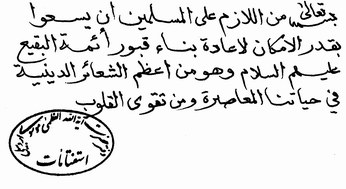 بسمه تعالى من اللازم على المسلمين ان يسعوا
بقدر الامكان لاعادة بناء قبور أئمة البقيع
عليهم السلام وهو من اعظم الشعائر الدينية
في حياتنا المعاصرة ومن تقوى القلوب
آية الله العظمى
استفتاءات